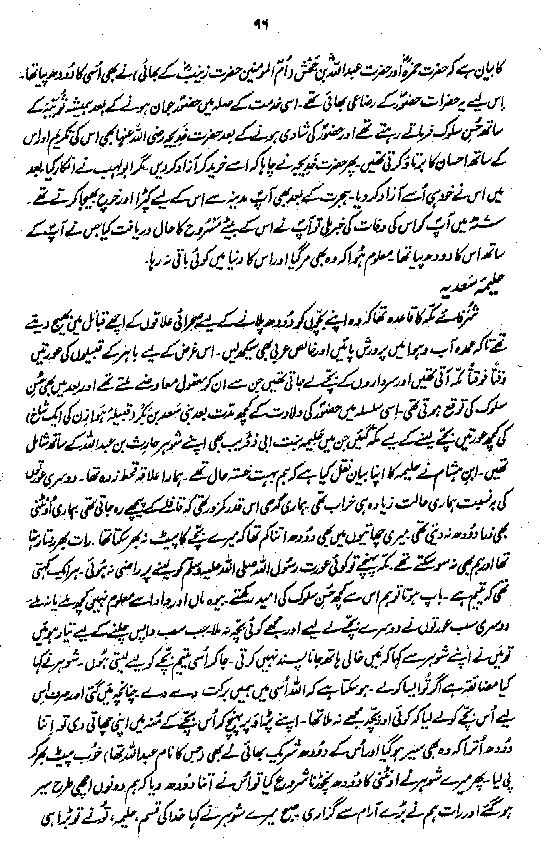 ۹۹
کا بیان ہے کہ حضرت حمزہؓ اور حضرت عبداللہؓ بن جحش (ام المومنین حضرت زینبؓ کے بھائی) نے بھی اسی کا دودھ پیا تھا۔
اس لیے یہ حضرات حضورؐ کے رضاعی بھائی تھے۔ اسی خدمت کے صلہ میں حضورؐ جوان ہونے کے بعد ہمیشہ ثُوَیبَہ کے
ساتھ حسن سلوک فرماتے رہتے تھے اور حضورؐ کی شادی ہونے کے بعد حضرت خدیجہ رضی اللہ عنہا بھی اس کی تکریم اور اس
کے ساتھ احسان کا برتاؤ کرتی تھیں۔ پھر حضرت خدیجہؓ نے چاہا کہ اسے خرید کر آزاد کر دیں مگر ابولہب نے انکار کیا۔ بعد
میں اس نے خود ہی اُسے آزاد کر دیا۔ ہجرت کے بعد بھی آپؐ مدینہ سے اس کے لیے کپڑا اور خرچ بھیجا کرتے تھے۔
میں آپؐ کو اس کی وفات کی خبر ملی تو آپؐ نے اس کے بیٹے مَسْرُوح کا حال دریافت کیا جس نے آپؐ کے
ساتھ اس کا دودھ پیا تھا۔ معلوم ہوا کہ وہ بھی مر گیا اور اس کا دنیا میں کوئی باقی نہ رہا۔
حلیمۂ سعدیہ
شرفائے مکہ کا قاعدہ تھا کہ وہ اپنے بچوں کو دودھ پلانے کے لیے صحرائی علاقوں کے اچھے قبائل میں بھیج دیتے
تھے تاکہ عمدہ آب و ہوا میں پرورش پائیں اور خالص عربی بھی سیکھ لیں۔ اس غرض کے لیے باہر کے قبیلوں کی عورتیں
وقتاً فوقتاً مکہ آتی تھیں اور سرداروں کے بچے لے جاتی تھیں جن سے ان کو معقول معاوضے ملتے تھے اور بعد میں بھی حسن
سلوک کی توقع ہوتی تھی۔ اسی سلسلہ میں حضورؐ کی ولادت کے کچھ مدت بعد بنی سعد بن بکر (قبیلۂ ہوازن کی ایک شاخ)
کی کچھ عورتیں بچے لینے کے لیے مکہ گئیں جن میں حلیمہ بنت ابی ذؤیب بھی اپنے شوہر حارث بن عبداللہ کے ساتھ شامل
تھیں۔ ابن ہشام نے حلیمہ کا اپنا بیان نقل کیا ہے کہ ہم بہت خستہ حال تھے۔ ہمارا علاقہ قحط زدہ تھا۔ دوسری عورتوں
کی بہ نسبت ہماری حالت زیادہ ہی خراب تھی۔ ہماری گدھی اس قدر کمزور تھی کہ قافلے کے پیچھے رہ جاتی تھی۔ ہماری اونٹنی
بھی ذرا دودھ نہ دیتی تھی۔ میری چھاتیوں میں بھی دودھ اتنا کم تھا کہ میرے بچے کا پیٹ نہ بھر سکتا تھا۔ رات بھر روتا رہتا
تھا اور ہم بھی نہ سو سکتے تھے۔ مکہ پہنچے تو کوئی عورت رسول اللہ صلی اللہ علیہ وسلم کو لینے پر راضی نہ ہوئی۔ ہر ایک کہتی
تھی کہ یتیم ہے۔ باپ ہوتا تو ہم اس سے کچھ حسن سلوک کی امید رکھتے۔ بیوہ ماں اور دادا سے معلوم نہیں کچھ ملے یا نہ ملے۔
دوسری سب عورتوں نے دوسرے بچے لے لیے اور مجھے کوئی بچہ نہ ملا۔ جب سب واپس چلنے کے لیے تیار ہوئیں
تو میں نے اپنے شوہر سے کہا کہ میں خالی ہاتھ جانا پسند نہیں کرتی۔ جا کر اسی یتیم بچے کو لیے لیتی ہوں۔ شوہر نے کہا
کیا مضائقہ ہے اگر تو ایسا کر لے۔ ہو سکتا ہے کہ اللہ اسی میں ہمیں برکت دے دے۔ چنانچہ میں گئی اور صرف اس
لیے اُس بچے کو لے لیا کہ کوئی اور بچہ مجھے نہ ملا تھا۔ اپنے پڑاؤ پر پہنچ کر اُس بچے کے منہ میں اپنی چھاتی دی تو اتنا
دودھ اُترا کہ وہ بھی سیر ہو گیا اور اُس کے دودھ شریک بھائی نے بھی (جس کا نام عبداللہ تھا) خوب پیٹ بھر کر
پی لیا۔ پھر میرے شوہر نے اونٹنی کا دودھ نچوڑنا شروع کیا تو اُس نے اتنا دودھ دیا کہ ہم دونوں اچھی طرح سیر
ہو گئے اور رات ہم نے بڑے آرام سے گزاری۔ صبح میرے شوہر نے کہا خدا کی قسم، حلیمہ، تو نے تو بڑا ہی